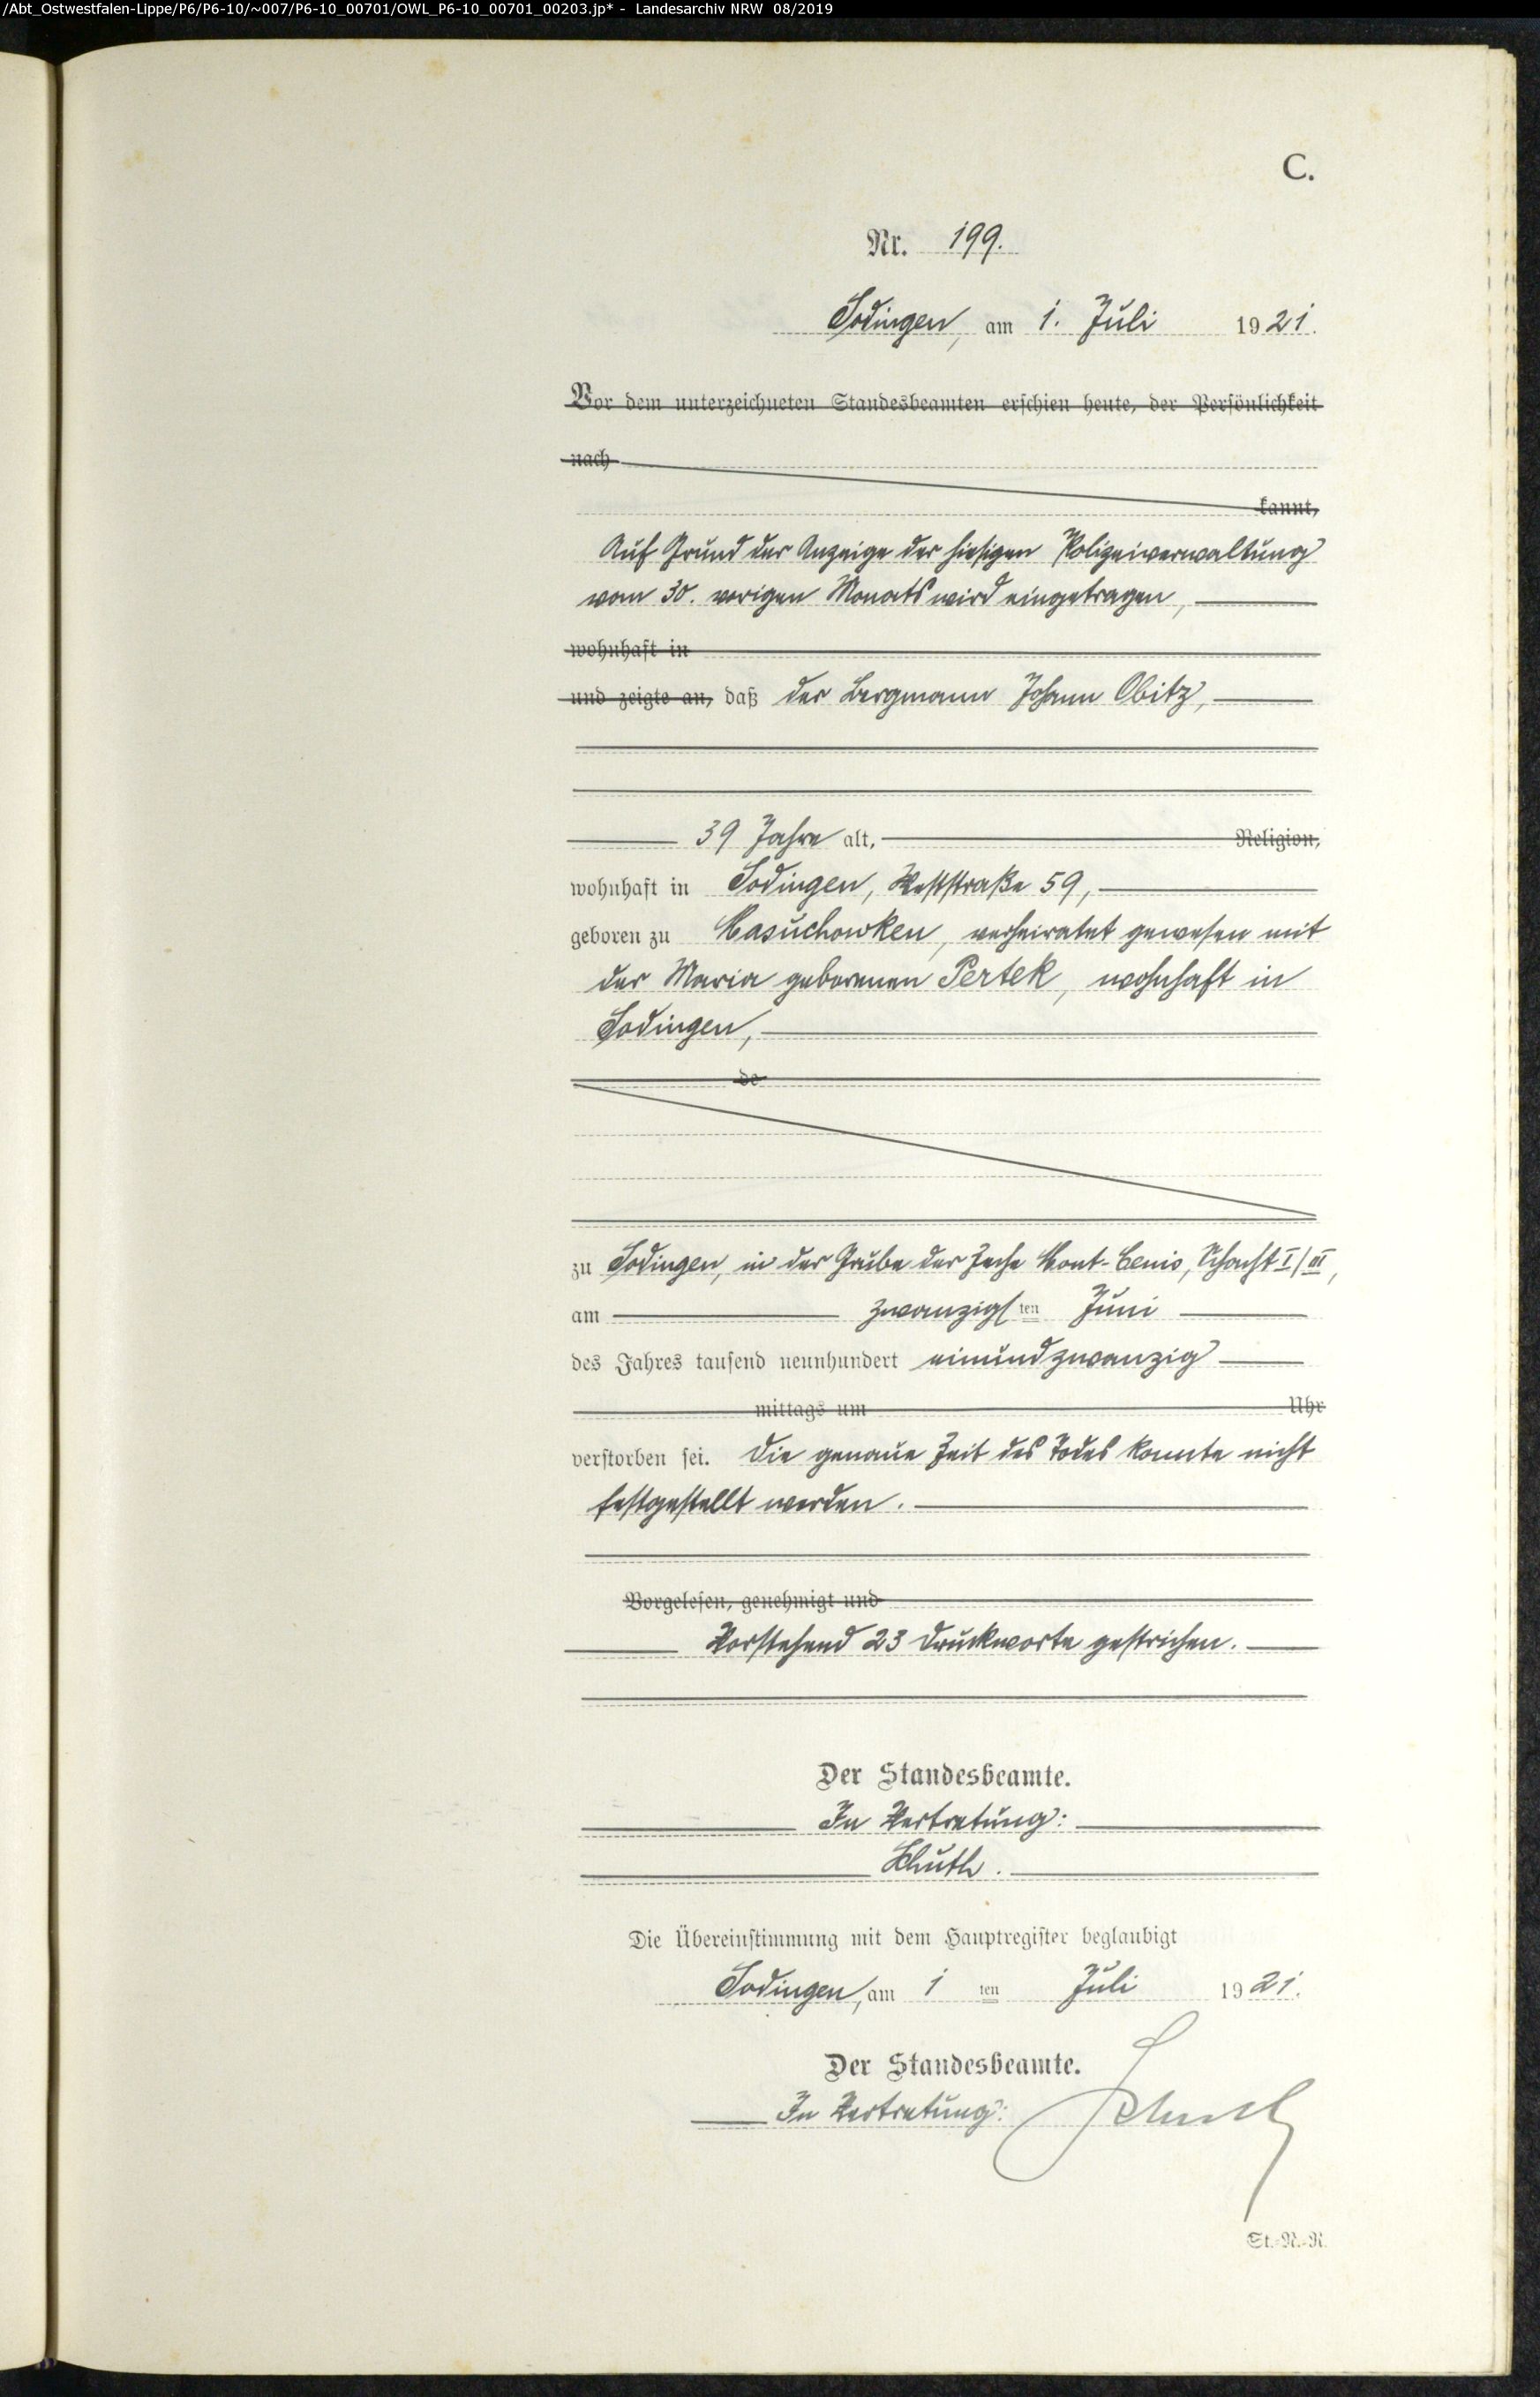 /Abt_Ostwestfalen-Lippe/P6/P6-10/~007/P6-10_00701/OWL_P6-10_00701_00203.jp* - Landesarchiv NRW 08/2019
C.
Nr. 199.
Sodingen, am 1. Juli 1921.
Vor dem unterzeichneten Standesbeamten erschien heute, der Persönlichkeit
nach
kannt,
Auf Grund der Anzeige der hiesigen Polizeiverwaltung
vom 30. vorigen Monats wird eingetragen,
wohnhaft in
und zeigte an, daß der Bergmann Johann Obitz,
39 Jahre alt, Religion,
wohnhaft in Sodingen, Weststraße 59,
geboren zu Masuchowken, verheiratet gewesen mit
der Maria geborenen Pertek, wohnhaft in
Sodingen,
de
zu Sodingen, in der Grube der Zeche Mont-Cenis, Schacht I/III,
am zwanzigsten Juni
des Jahres tausend neunhundert einundzwanzig
mittags um Uhr
verstorben sei. Die genaue Zeit des Todes konnte nicht
festgestellt werden.
Vorgelesen, genehmigt und
Vorstehend 23 Druckworte gestrichen.
Der Standesbeamte.
In Vertretung:
Die Übereinstimmung mit dem Hauptregister beglaubigt
Sodingen, am 1 ten Juli 1921.
Der Standesbeamte.
In Vertretung:
St.-N.-R.